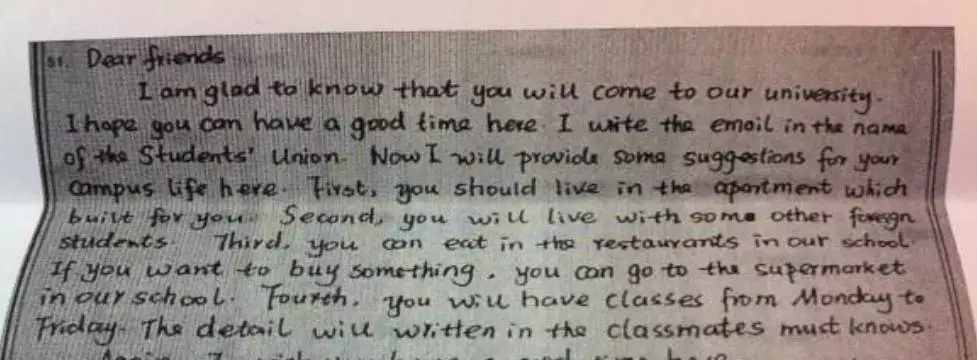 51. Dear friends
I am glad to know that you will come to our university.
I hope you can have a good time here. I write the email in the name
of the Students' Union. Now I will provide some suggestions for your
campus life here. First, you should live in the apartment which
built for you. Second, you will live with some other foreign
students. Third, you can eat in the restaurants in our school.
If you want to buy something, you can go to the supermarket
in our school. Fourth, you will have classes from Monday to
Friday. The detail will written in the classmates must knows.